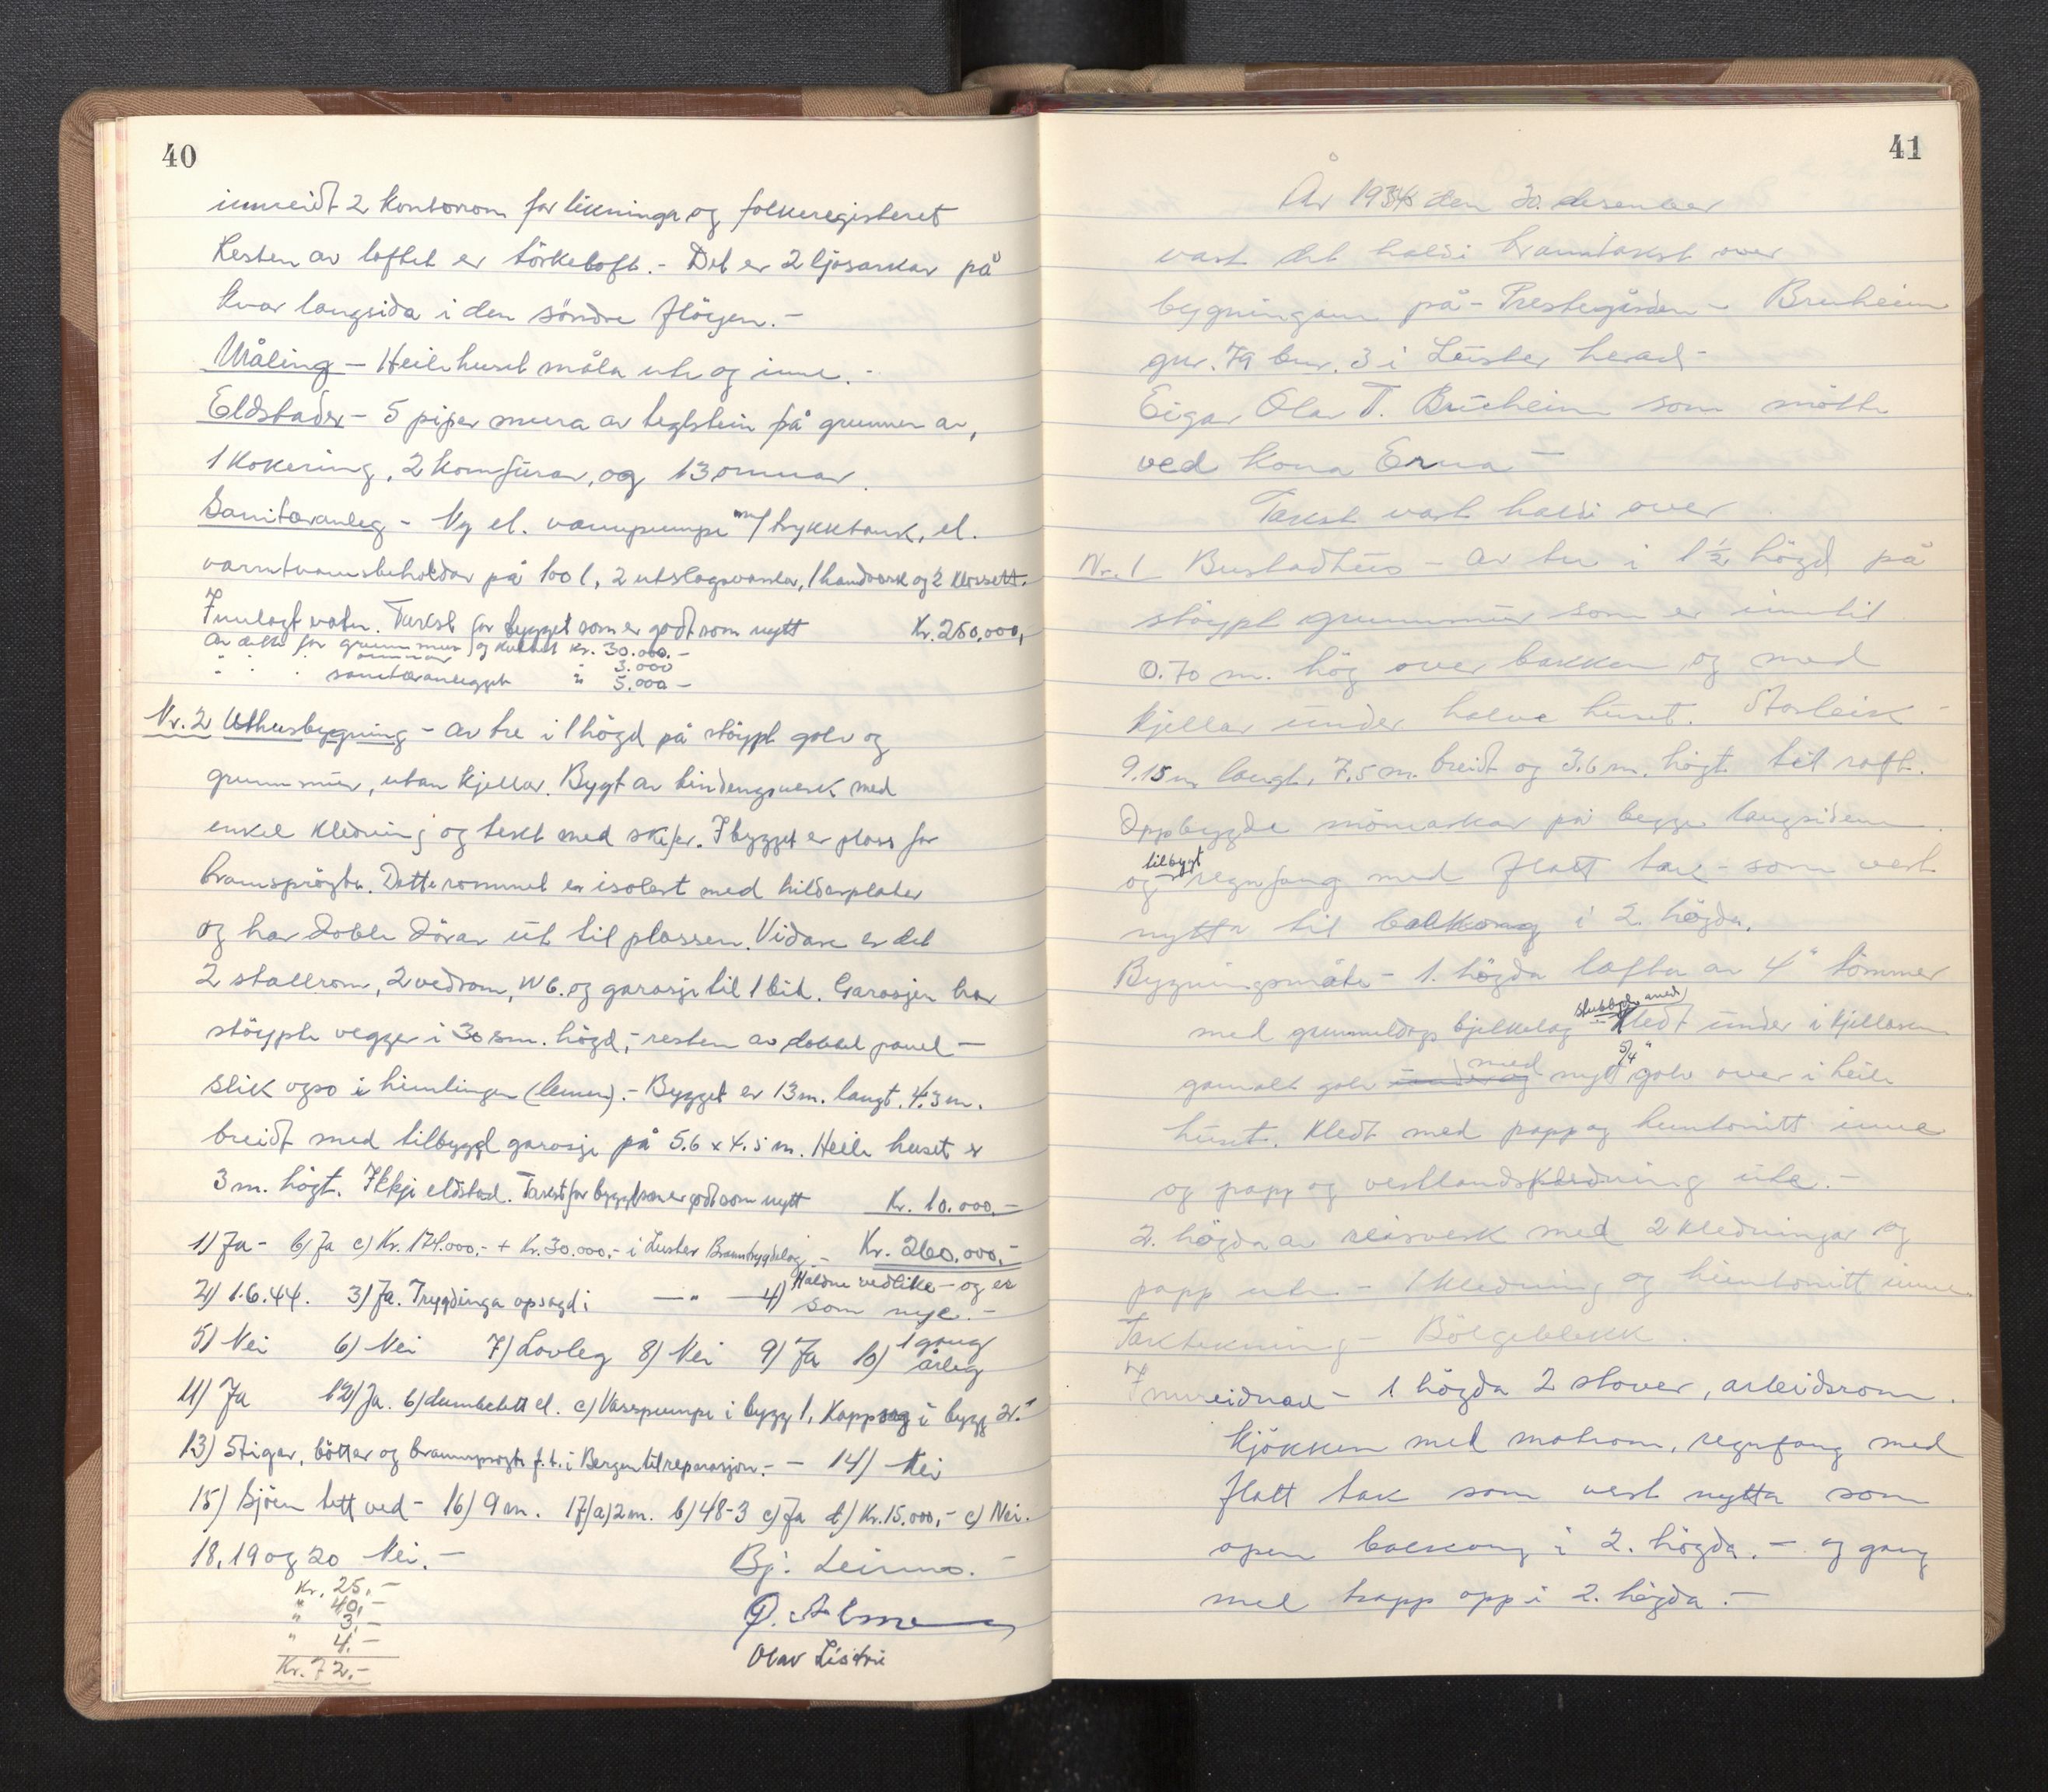 40
innreidt 2 kontorrom for likninga og folkeregisteret
Resten av loftet er törkeloft. - Det er 2 ljosarkar på
kvar langsida i den söndre flöyen. -
Måling - Heile huset måla ute og inne. -
Eldstader - 5 piper mura av teglstein på grunnen av,
1 kokering, 2 komfürar, og 13 omnar.
Sanitæranleg - Ny el. vannpumpe m/ trykktank, el.
varmtvannsbeholdar på 100 l, 2 utslagsvaskar, 1 handvask og 2 klosett.
Innlagt vatn. Takst for bygget som er godt som nytt Kr. 250,000,
Av dette for grunnmur og kvelvet Kr. 30.000.-
" " " omnar " 3.000
" " " sanitæranlegget " 5.000 -
Nr. 2 Uthusbygning - av tre i 1 högd på stöypt golv og
grunnmür, utan kjellar. Bygt av bindingsverk med
enkel kledning og tekt med skifer. I bygget er plass for
brannspröyta. Dette rommet er isolert med hilderplater
og har doble dörar üt til plassen. Vidare er det
2 stallrom, 2 vedrom, W C. og garasje til 1 bil. Garasjen har
stöypte vegger i 30 sm. högd, - resten av dobbel panel -
slik ogso i himlingen (lemen). - Bygget er 13 m. langt, 4.3 m.
breidt med tilbygd garasje på 5.6 x 4.5 m. Heile huset er
3 m. högt. Ikkje eldstad. Takst for bygget som er godt som nytt Kr. 10.000,-
1) Ja - b) Ja c) Kr. 174.000,- + Kr. 30.000,- i Luster Branntrygdelag - Kr. 260.000,-
2) 1.6.44. 3) Ja. Trygdinga opsagd i — " — 4) Haldne vedlike - og er
som nye. -
5) Nei 6) Nei 7) Lovleg 8) Nei 9) Ja 10) 1 gang
årleg
11) Ja 12) Ja. b) dumbelett el. c) Vasspumpe i bygg 1, Kappsag i bygg 2.
13) Stigar, böttar og brannspröyte f.t. i Bergen til reparasjon. - - 14) Nei
15) Sjöen tett ved - 16) 9 m. 17) a) 2 m. b) 48-3 c) Ja d) Kr. 15.000,- e) Nei.
18, 19 og 20 Nei. -
Bj. Leirmo. -
Kr. 25,-
" 40,-
" 3,-
" 4.-
Kr. 72.-
Olav Listrie
41
År 1945 den 30. desember
vart det haldi branntakst over
bygningane på - Prestegården - Bruheim
gnr. 79 bnr. 3 i Lüster herad -
Eigar Olav T. Brüheim som mötte
ved kona Erna -
Takst vart haldi over
Nr. 1 Bustadhüs - av tre i 1 1/2 högd på
stöypt grunnmür som er inntil
0.70 m. hög over bakken, og med
kjellar ünder halve hüset. Storleik -
9.15 m langt, 7.5 m. breidt og 3.6 m. högt til raft.
Oppbygde mönearkar på begge langsidene.
og tilbygt regnfang med flatt tak - som vert
nytta til balkong i 2. högda.
Bygningsmåte - 1. högda lafta av 4" tömmer
med grunneldags bjelkelag stubbgolv med kledt ünder i kjellaren
gamalt golv med nytt 5/4" golv over i heile
hüset. Kledt med papp og huntonitt inne
og papp og vestlandskledning üte. -
2. högda av reisverk med 2 kledningar og
papp ute. - 1 kledning og huntonitt inne.
Taktekning - Bölgeblekk.
Innreidnad - 1. högda 2 stover, arbeidsrom.
kjökken med matrom, regnfang med
flatt tak som vert nytta som
open balkong i 2. högda. - og gang
med trapp opp i 2. högda. -